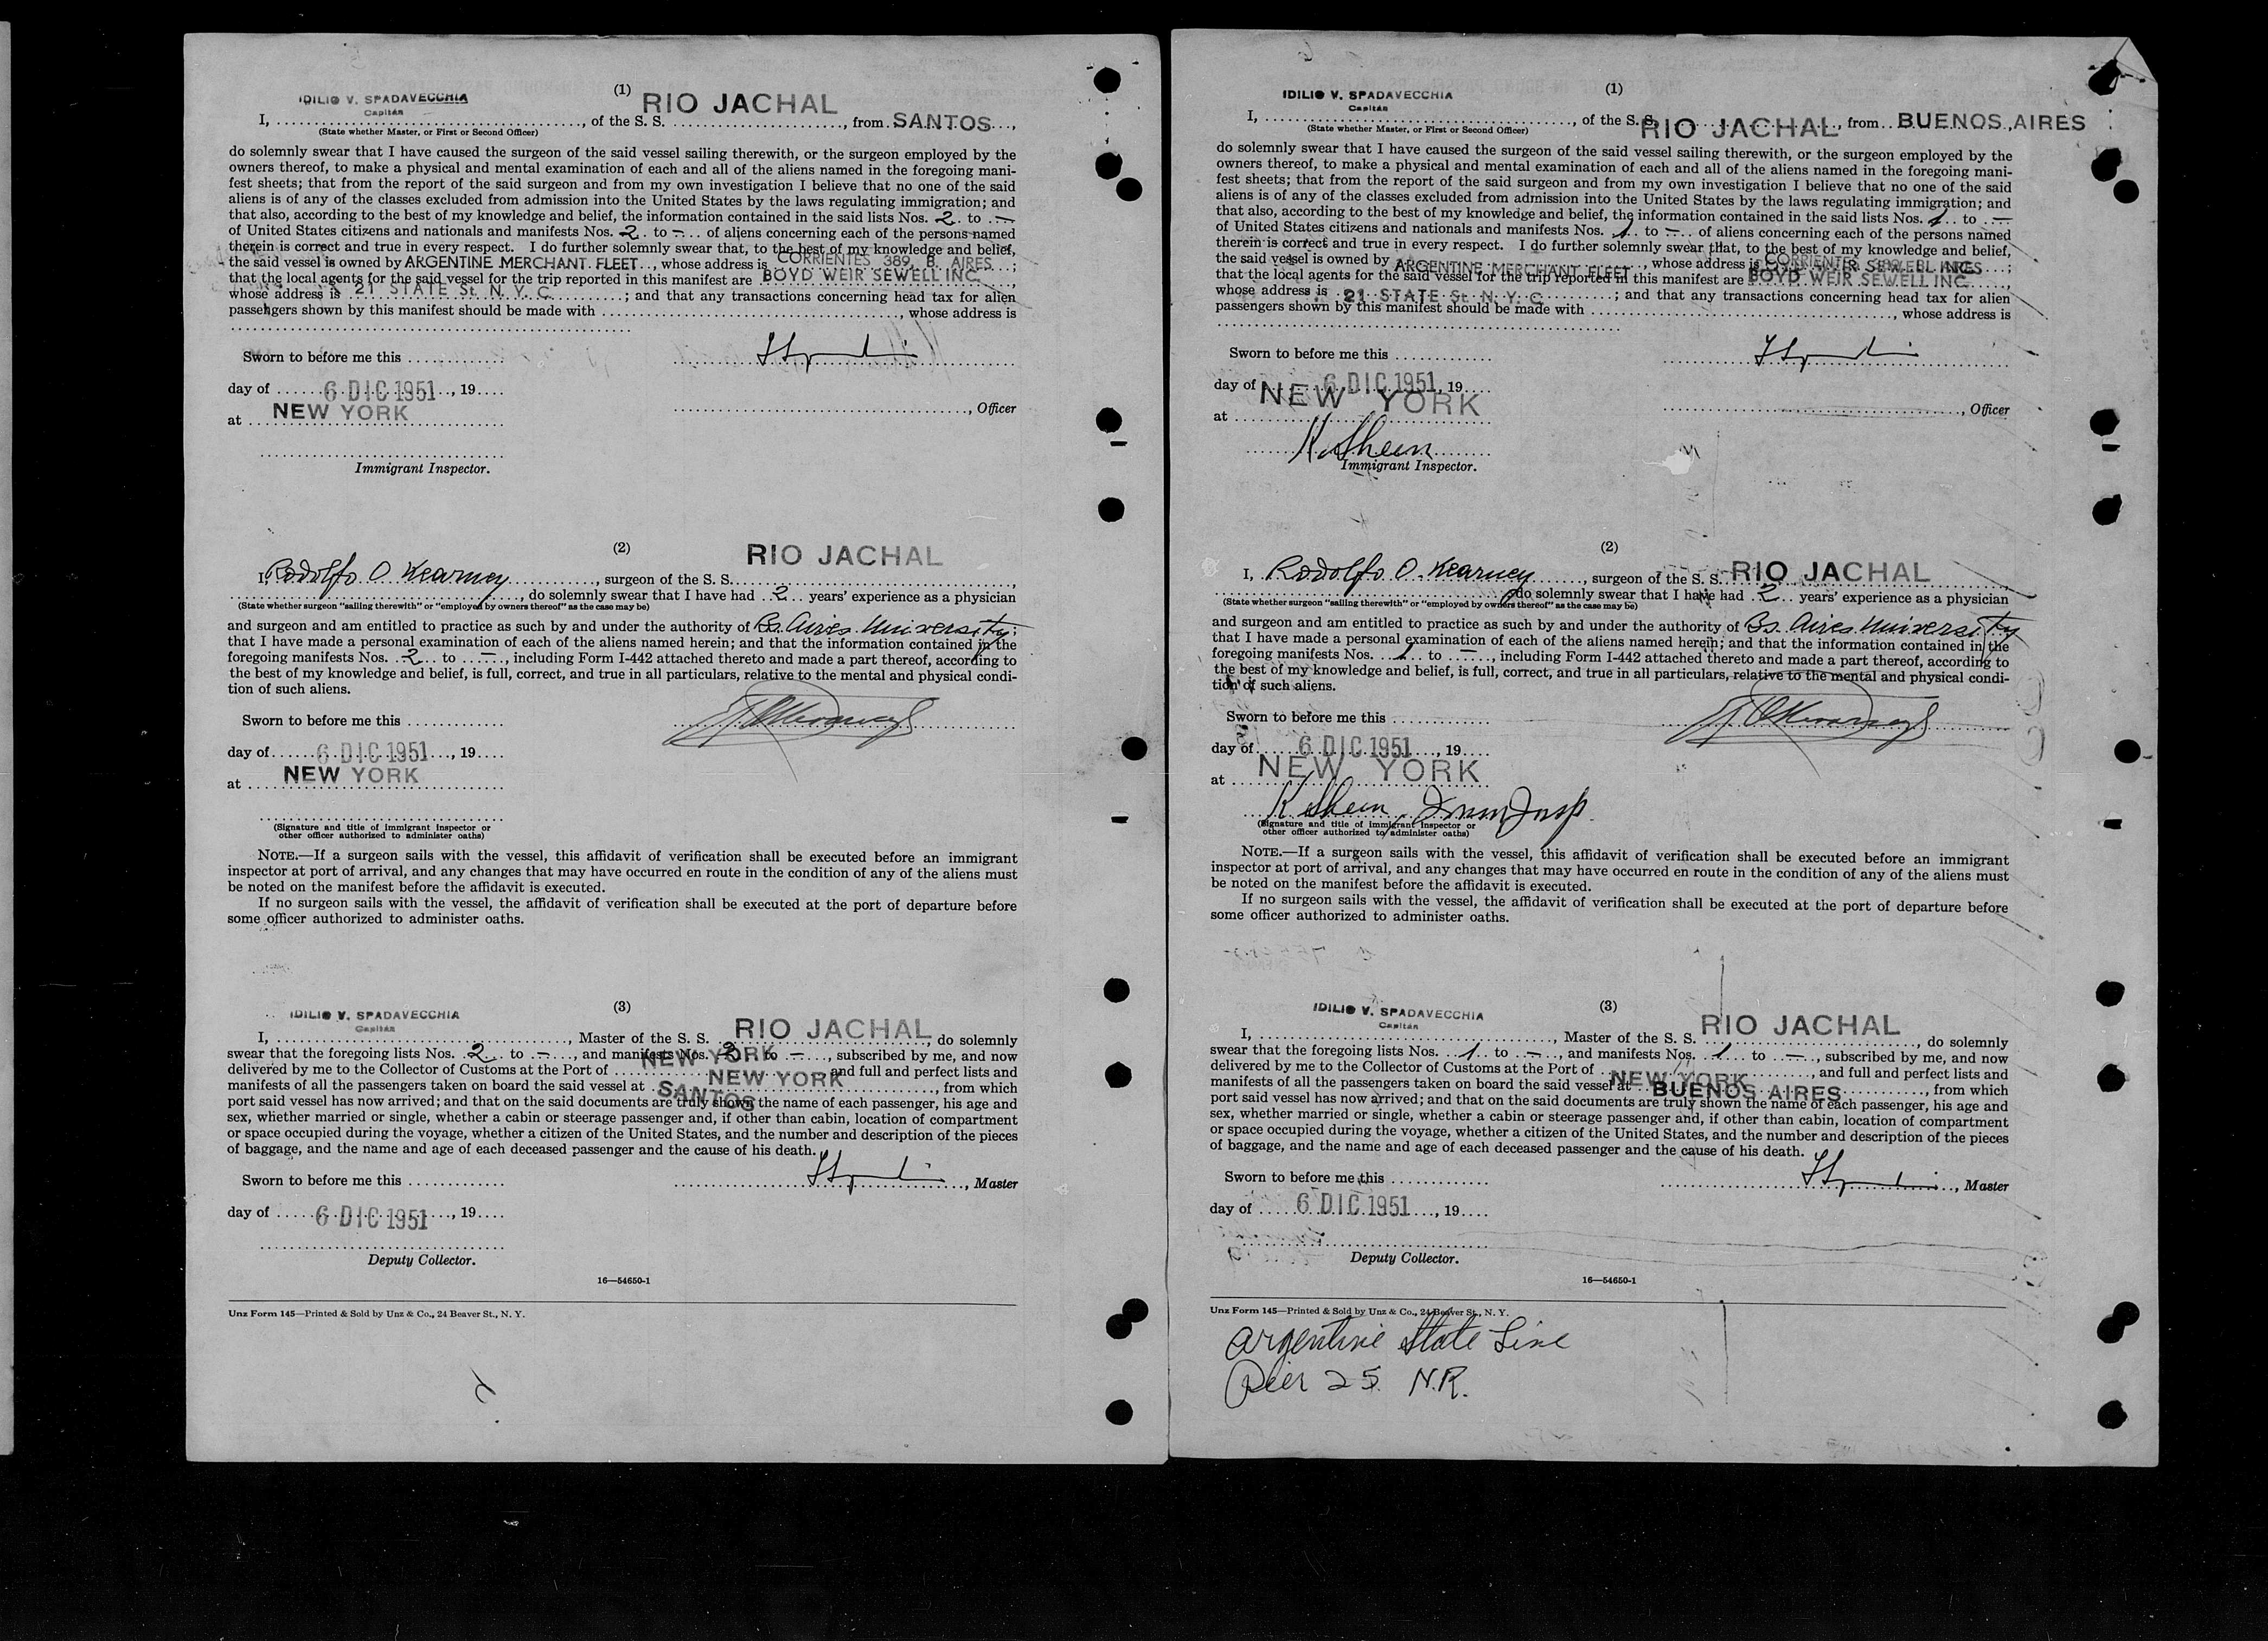 (1)
IDILIO V. SPADAVECCHIA
Capitán
RIO JACHAL
I, ..............., of the S. S. ..............., from SANTOS ...,
(State whether Master, or First or Second Officer)
do solemnly swear that I have caused the surgeon of the said vessel sailing therewith, or the surgeon employed by the
owners thereof, to make a physical and mental examination of each and all of the aliens named in the foregoing mani-
fest sheets; that from the report of the said surgeon and from my own investigation I believe that no one of the said
aliens is of any of the classes excluded from admission into the United States by the laws regulating immigration; and
that also, according to the best of my knowledge and belief, the information contained in the said lists Nos. 2 to —
of United States citizens and nationals and manifests Nos. 2 to — of aliens concerning each of the persons named
therein is correct and true in every respect. I do further solemnly swear that, to the best of my knowledge and belief,
the said vessel is owned by ARGENTINE MERCHANT FLEET, whose address is CORRIENTES 389, B. AIRES;
that the local agents for the said vessel for the trip reported in this manifest are BOYD WEIR SEWELL INC.,
whose address is 21 STATE St. N. Y. C. ; and that any transactions concerning head tax for alien
passengers shown by this manifest should be made with ..............., whose address is
Sworn to before me this ............
day of 6 DIC 1951, 19....
at NEW YORK
..............., Officer
Immigrant Inspector.
(2)
RIO JACHAL
I, Rodolfo O. Kearney, surgeon of the S. S. ...............,
..............., do solemnly swear that I have had 2 years' experience as a physician
(State whether surgeon "sailing therewith" or "employed by owners thereof" as the case may be)
and surgeon and am entitled to practice as such by and under the authority of Bs. Aires University;
that I have made a personal examination of each of the aliens named herein; and that the information contained in the
foregoing manifests Nos. 2 to —, including Form I-442 attached thereto and made a part thereof, according to
the best of my knowledge and belief, is full, correct, and true in all particulars, relative to the mental and physical condi-
tion of such aliens.
Sworn to before me this ............
day of 6 DIC 1951, 19....
at NEW YORK
(Signature and title of immigrant inspector or
other officer authorized to administer oaths)
NOTE.—If a surgeon sails with the vessel, this affidavit of verification shall be executed before an immigrant
inspector at port of arrival, and any changes that may have occurred en route in the condition of any of the aliens must
be noted on the manifest before the affidavit is executed.
If no surgeon sails with the vessel, the affidavit of verification shall be executed at the port of departure before
some officer authorized to administer oaths.
(3)
IDILIO V. SPADAVECCHIA
Capitán
I, ..............., Master of the S. S. RIO JACHAL, do solemnly
swear that the foregoing lists Nos. 2 to —, and manifests Nos. 2 to —, subscribed by me, and now
delivered by me to the Collector of Customs at the Port of NEW YORK and full and perfect lists and
manifests of all the passengers taken on board the said vessel at NEW YORK SANTOS, from which
port said vessel has now arrived; and that on the said documents are truly shown the name of each passenger, his age and
sex, whether married or single, whether a cabin or steerage passenger and, if other than cabin, location of compartment
or space occupied during the voyage, whether a citizen of the United States, and the number and description of the pieces
of baggage, and the name and age of each deceased passenger and the cause of his death.
Sworn to before me this ............
..............., Master
day of 6 DIC 1951, 19....
Deputy Collector.
16—54650-1
Unz Form 145—Printed & Sold by Unz & Co., 24 Beaver St., N. Y.
(1)
IDILIO V. SPADAVECCHIA
Capitán
I, ..............., of the S. S. RIO JACHAL, from BUENOS AIRES
(State whether Master, or First or Second Officer)
do solemnly swear that I have caused the surgeon of the said vessel sailing therewith, or the surgeon employed by the
owners thereof, to make a physical and mental examination of each and all of the aliens named in the foregoing mani-
fest sheets; that from the report of the said surgeon and from my own investigation I believe that no one of the said
aliens is of any of the classes excluded from admission into the United States by the laws regulating immigration; and
that also, according to the best of my knowledge and belief, the information contained in the said lists Nos. 1 to —
of United States citizens and nationals and manifests Nos. 1 to — of aliens concerning each of the persons named
therein is correct and true in every respect. I do further solemnly swear that, to the best of my knowledge and belief,
the said vessel is owned by ARGENTINE MERCHANT FLEET, whose address is CORRIENTES 389, B. AIRES;
that the local agents for the said vessel for the trip reported in this manifest are BOYD WEIR SEWELL INC.,
whose address is 21 STATE St. N. Y. C. ; and that any transactions concerning head tax for alien
passengers shown by this manifest should be made with ..............., whose address is
Sworn to before me this ............
day of 6 DIC 1951, 19....
at NEW YORK
..............., Officer
Immigrant Inspector.
(2)
I, Rodolfo O. Kearney, surgeon of the S. S. RIO JACHAL
do solemnly swear that I have had 2 years' experience as a physician
(State whether surgeon "sailing therewith" or "employed by owners thereof" as the case may be)
and surgeon and am entitled to practice as such by and under the authority of Bs. Aires University
that I have made a personal examination of each of the aliens named herein; and that the information contained in the
foregoing manifests Nos. 1 to —, including Form I-442 attached thereto and made a part thereof, according to
the best of my knowledge and belief, is full, correct, and true in all particulars, relative to the mental and physical condi-
tion of such aliens.
Sworn to before me this ............
day of 6 DIC 1951, 19....
at NEW YORK
Imm Insp.
(Signature and title of immigrant inspector or
other officer authorized to administer oaths)
NOTE.—If a surgeon sails with the vessel, this affidavit of verification shall be executed before an immigrant
inspector at port of arrival, and any changes that may have occurred en route in the condition of any of the aliens must
be noted on the manifest before the affidavit is executed.
If no surgeon sails with the vessel, the affidavit of verification shall be executed at the port of departure before
some officer authorized to administer oaths.
(3)
IDILIO V. SPADAVECCHIA
Capitán
I, ..............., Master of the S. S. RIO JACHAL, do solemnly
swear that the foregoing lists Nos. 1 to —, and manifests Nos. 1 to —, subscribed by me, and now
delivered by me to the Collector of Customs at the Port of ..............., and full and perfect lists and
manifests of all the passengers taken on board the said vessel at NEW YORK BUENOS AIRES, from which
port said vessel has now arrived; and that on the said documents are truly shown the name of each passenger, his age and
sex, whether married or single, whether a cabin or steerage passenger and, if other than cabin, location of compartment
or space occupied during the voyage, whether a citizen of the United States, and the number and description of the pieces
of baggage, and the name and age of each deceased passenger and the cause of his death.
Sworn to before me this ............
..............., Master
day of 6 DIC 1951, 19....
Deputy Collector.
16—54650-1
Unz Form 145—Printed & Sold by Unz & Co., 24 Beaver St., N. Y.
Argentine State Line
Pier 25 N.R.